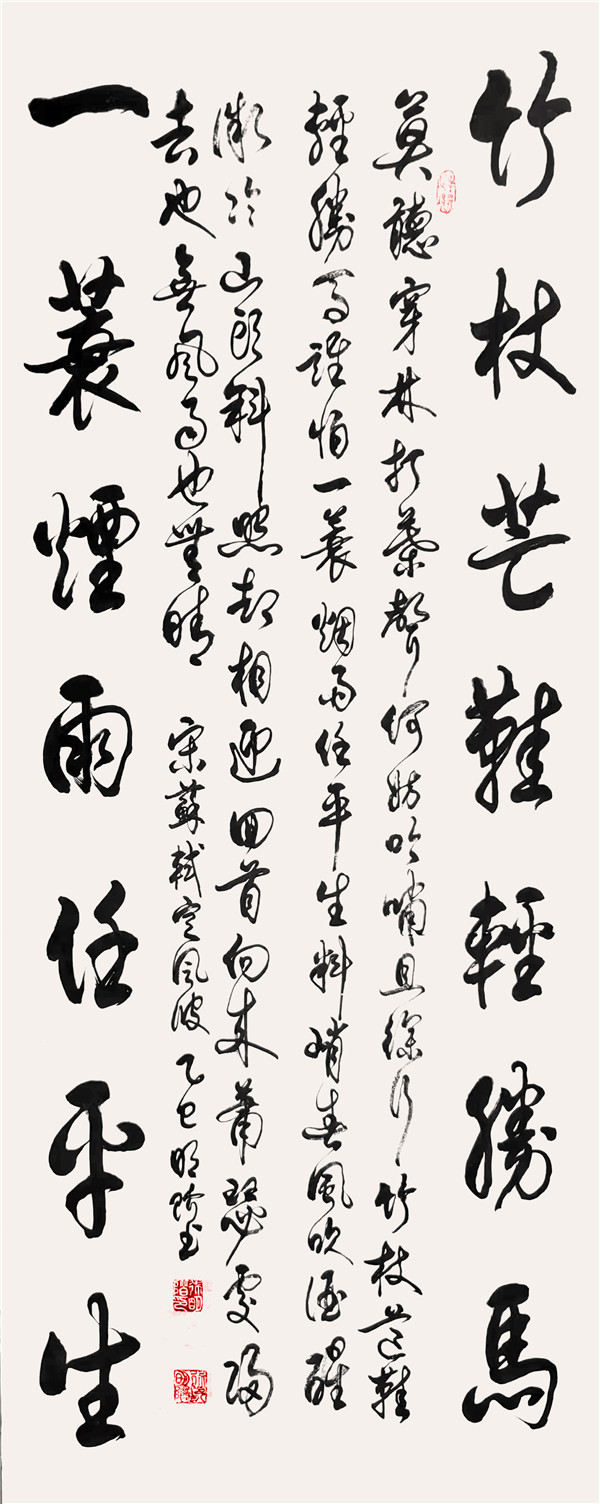 竹杖芒鞋輕勝馬
莫聽穿林打葉聲何妨吟嘯且徐行竹杖芒鞋
輕勝馬誰怕一蓑烟雨任平生料峭春風吹酒醒
微冷山頭斜照却相迎回首向來蕭瑟處歸
去也無風雨也無晴 宋蘇軾定風波 乙巳明书
一蓑煙雨任平生